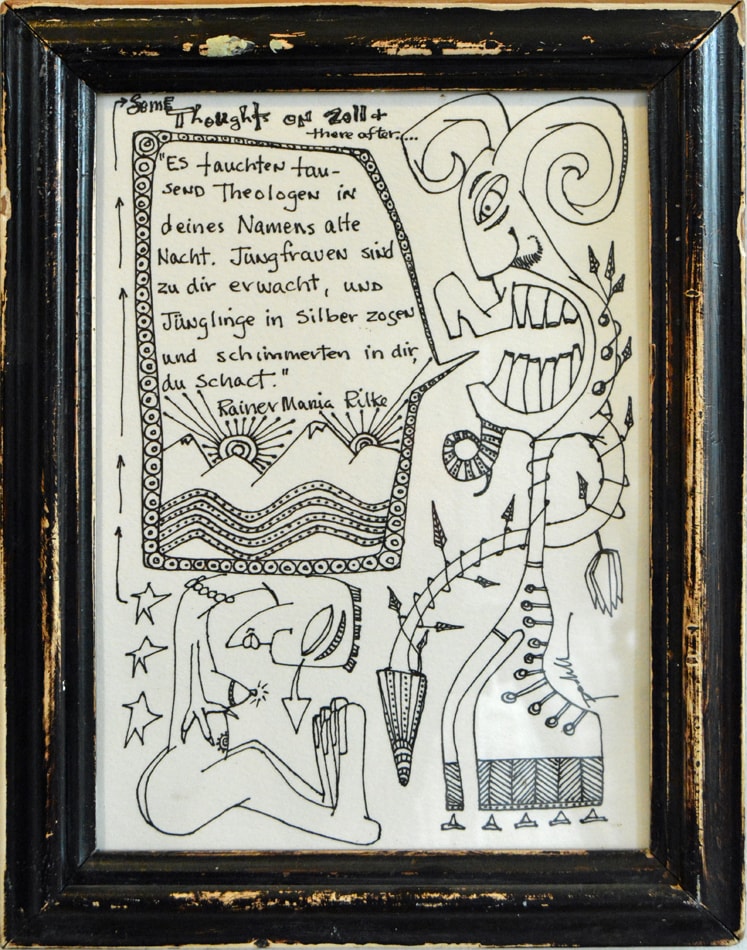 Some Thoughts on 2011 +
there after....
"Es tauchten tau-
send Theologen in
deines Namens alte
Nacht. Jüngfrauen sind
zu dir erwacht, und
Jünglinge in Silber zogen
und schimmerten in dir,
du Schact."
Rainer Maria Rilke